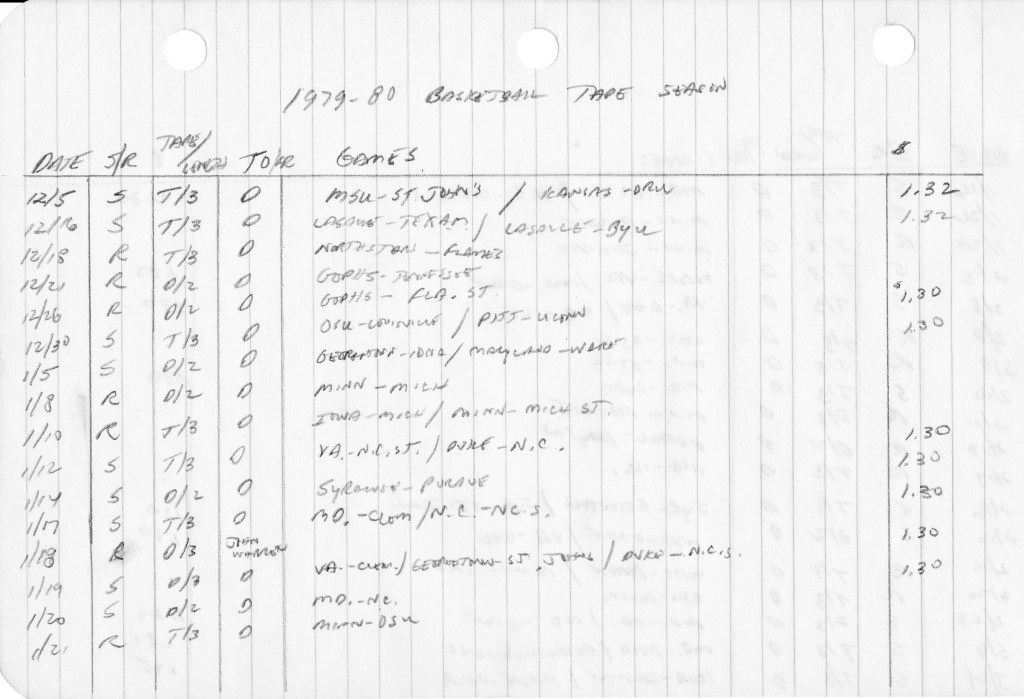 1979-80 BASKETBALL TAPE SEASON
DATE S/R TAPE/LENGTH TO/FR GAMES $
12/5 S T/3 O MSU-ST. JOHN'S / KANSAS-ORU 1.32
12/16 S T/3 O LASALLE-TEXAM / LASALLE-BYU 1.32
12/18 R T/3 O NORTHSTARS-FLAMES
12/21 R O/2 O GOPHS-TENNESSEE
12/26 R O/2 O GOPHS-FLA. ST.
12/30 S T/3 O OSU-LOUISVILLE / PITT-UCONN $1.30
1/5 S O/2 O GEORGETOWN-IONA / MARYLAND- 1.30
1/8 R O/2 O MINN-MICH
1/10 R T/3 O IOWA-MICH / MINN-MICH ST.
1/12 S T/3 O VA.-N.C.ST. / DUKE-N.C. 1.30
1/14 S O/2 O SYRACUSE-PURDUE 1.30
1/17 S T/3 O MD.-CLEM / N.C.-N.C.S. 1.30
1/18 R O/3 JOHN WARREN
1/19 S O/3 O VA.-CLEM. / GEORGETOWN-ST. JOHNS / DUKE-N.C.S. 1.30
1/20 S O/2 O MD.-NC. 1.30
1/21 R T/3 O MINN-OSU